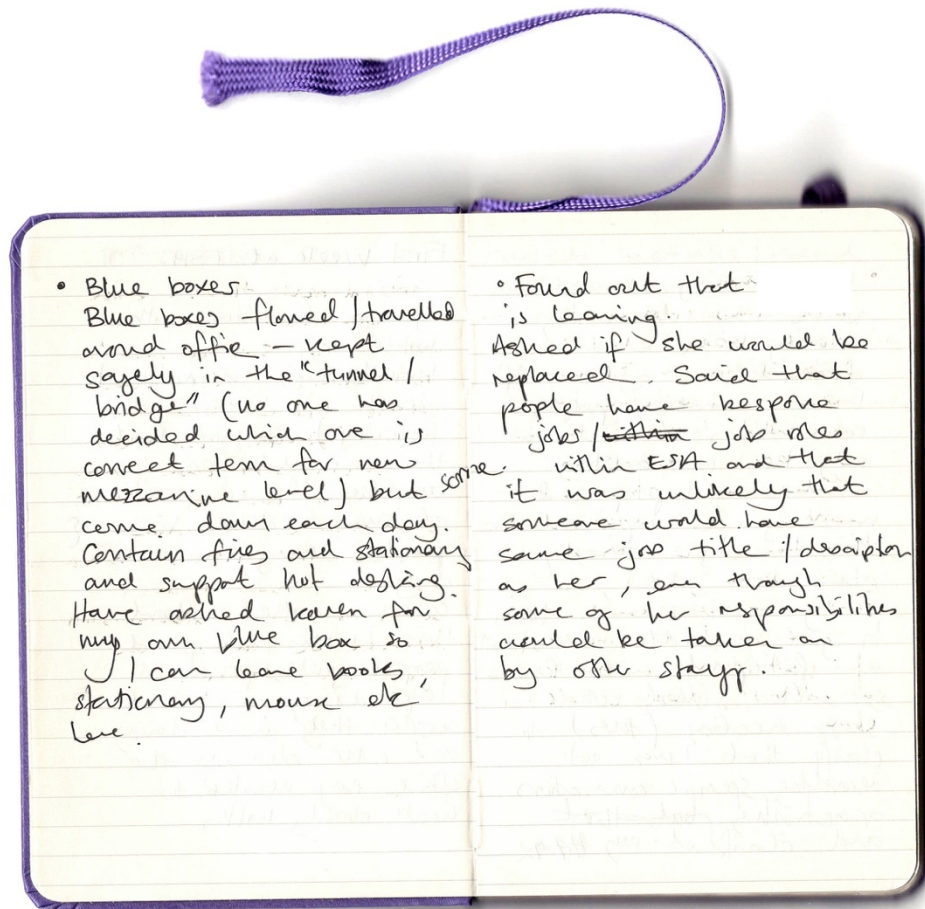 • Blue boxes
Blue boxes flowed / travelled
around offie – kept
safely in the "tunnel /
bridge" (no one has
decided which one is
correct term for new
mezzanine level) but some
come down each day.
Contain files and stationary
and support hot desking.
Have asked Karen for
my own blue box so
I can leave books,
stationary, mouse etc
here.
• Found out that
is leaving
Asked if she would be
replaced. Said that
people have bespoke
jobs / within job roles
within ESA and that
it was unlikely that
someone would have
same job title / description
as her, even though
some of her responsibilities
would be taken on
by other staff.